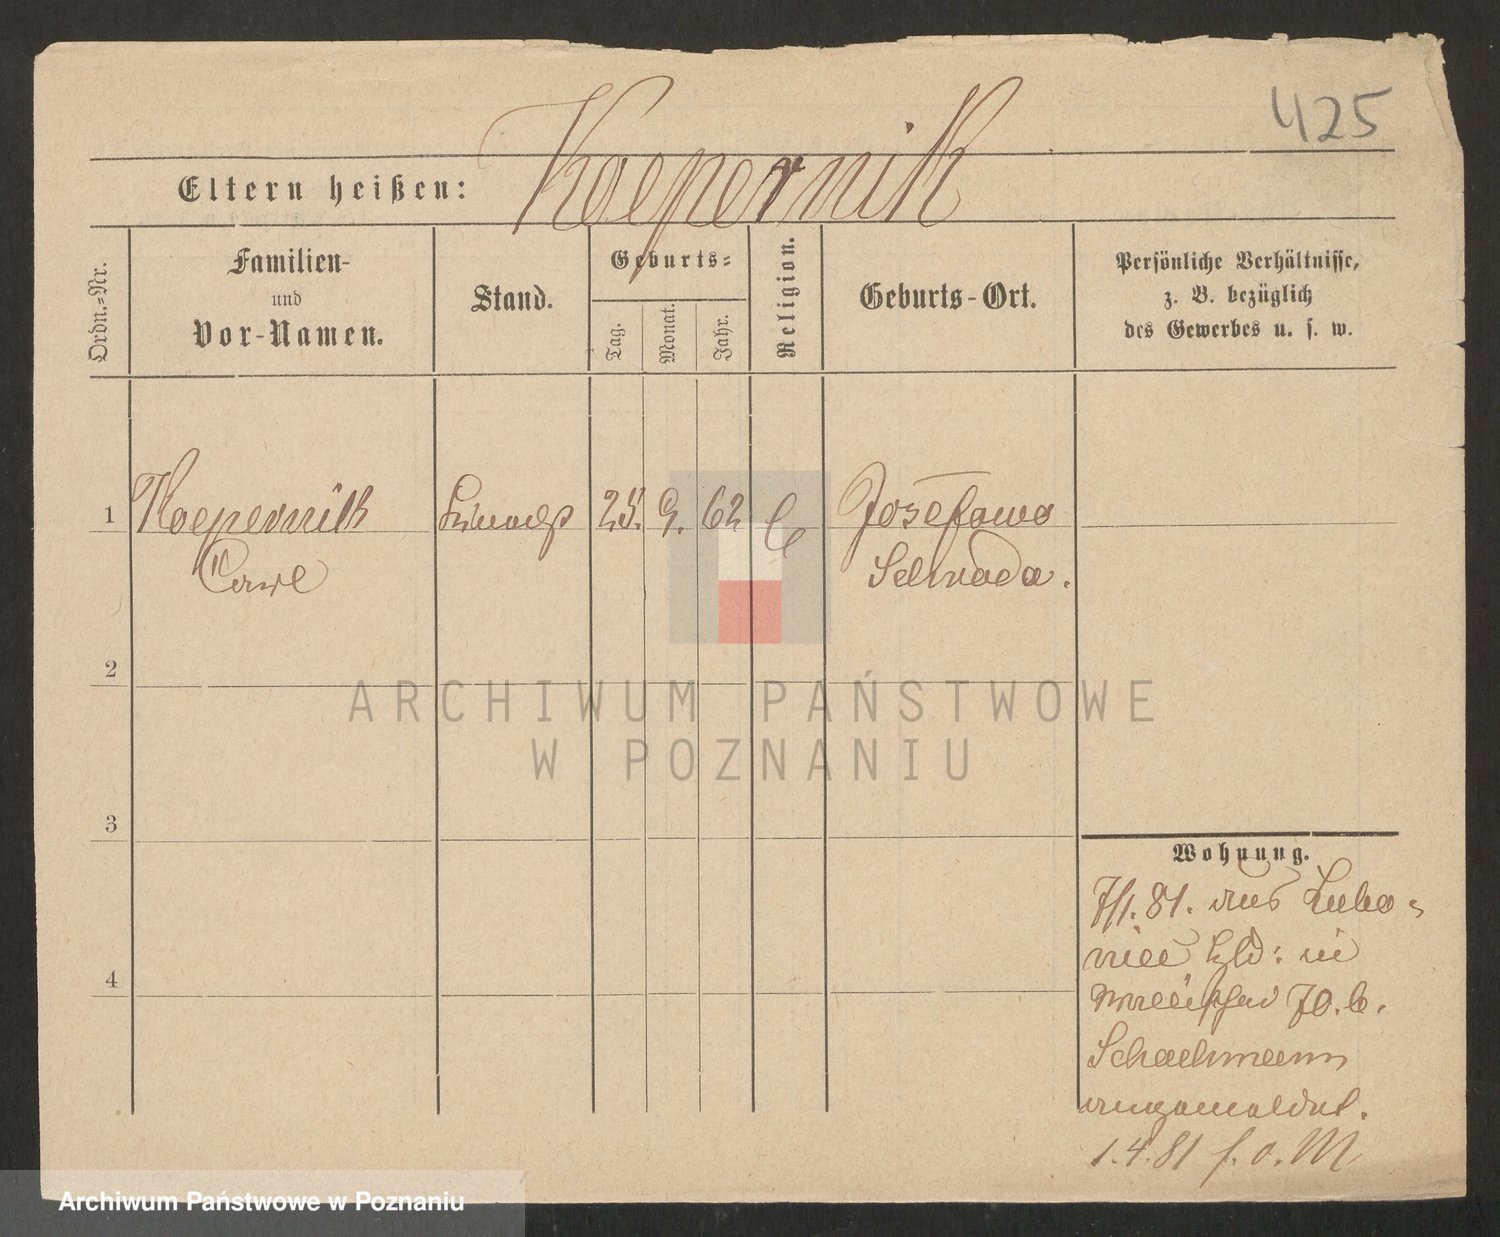 425
Koepernik
Eltern heißen:
Ordn.=Nr.
Familien-
und
Vor-Namen.
Stand.
Geburts=
Tag.
Monat.
Jahr.
Religion.
Geburts-Ort.
Persönliche Verhältnisse,
z. B. bezüglich
des Gewerbes u. s. w.
1
Koepernik
Carl
25. 9. 62
Josefowo
Schroda.
2
ARCHIWUM PAŃSTWOWE
W POZNANIU
3
Wohnung.
7/1. 81. aus
in
Wallischei 70. b.
Schachmann
angemeldet.
1.4.81 f. o. M
4
Archiwum Państwowe w Poznaniu